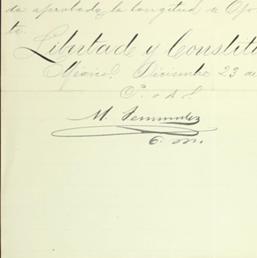 da aprobada la longitud de Ojo
te.
Libertad y Constitu
México, Diciembre 23 de
P. o d S
M. Fernandez
O. m.